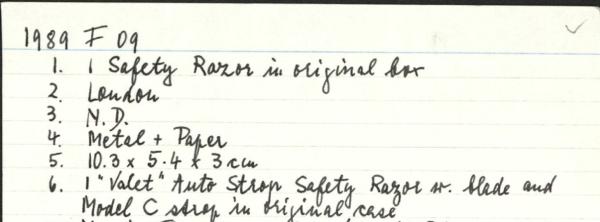 1989 F 09
1. 1 Safety Razor in original box
2. London
3. N.D.
4. Metal + Paper
5. 10.3 x 5.4 x 3 cm
6. 1 "Valet" Auto Strop Safety Razor w. blade and
Model C strop in original case